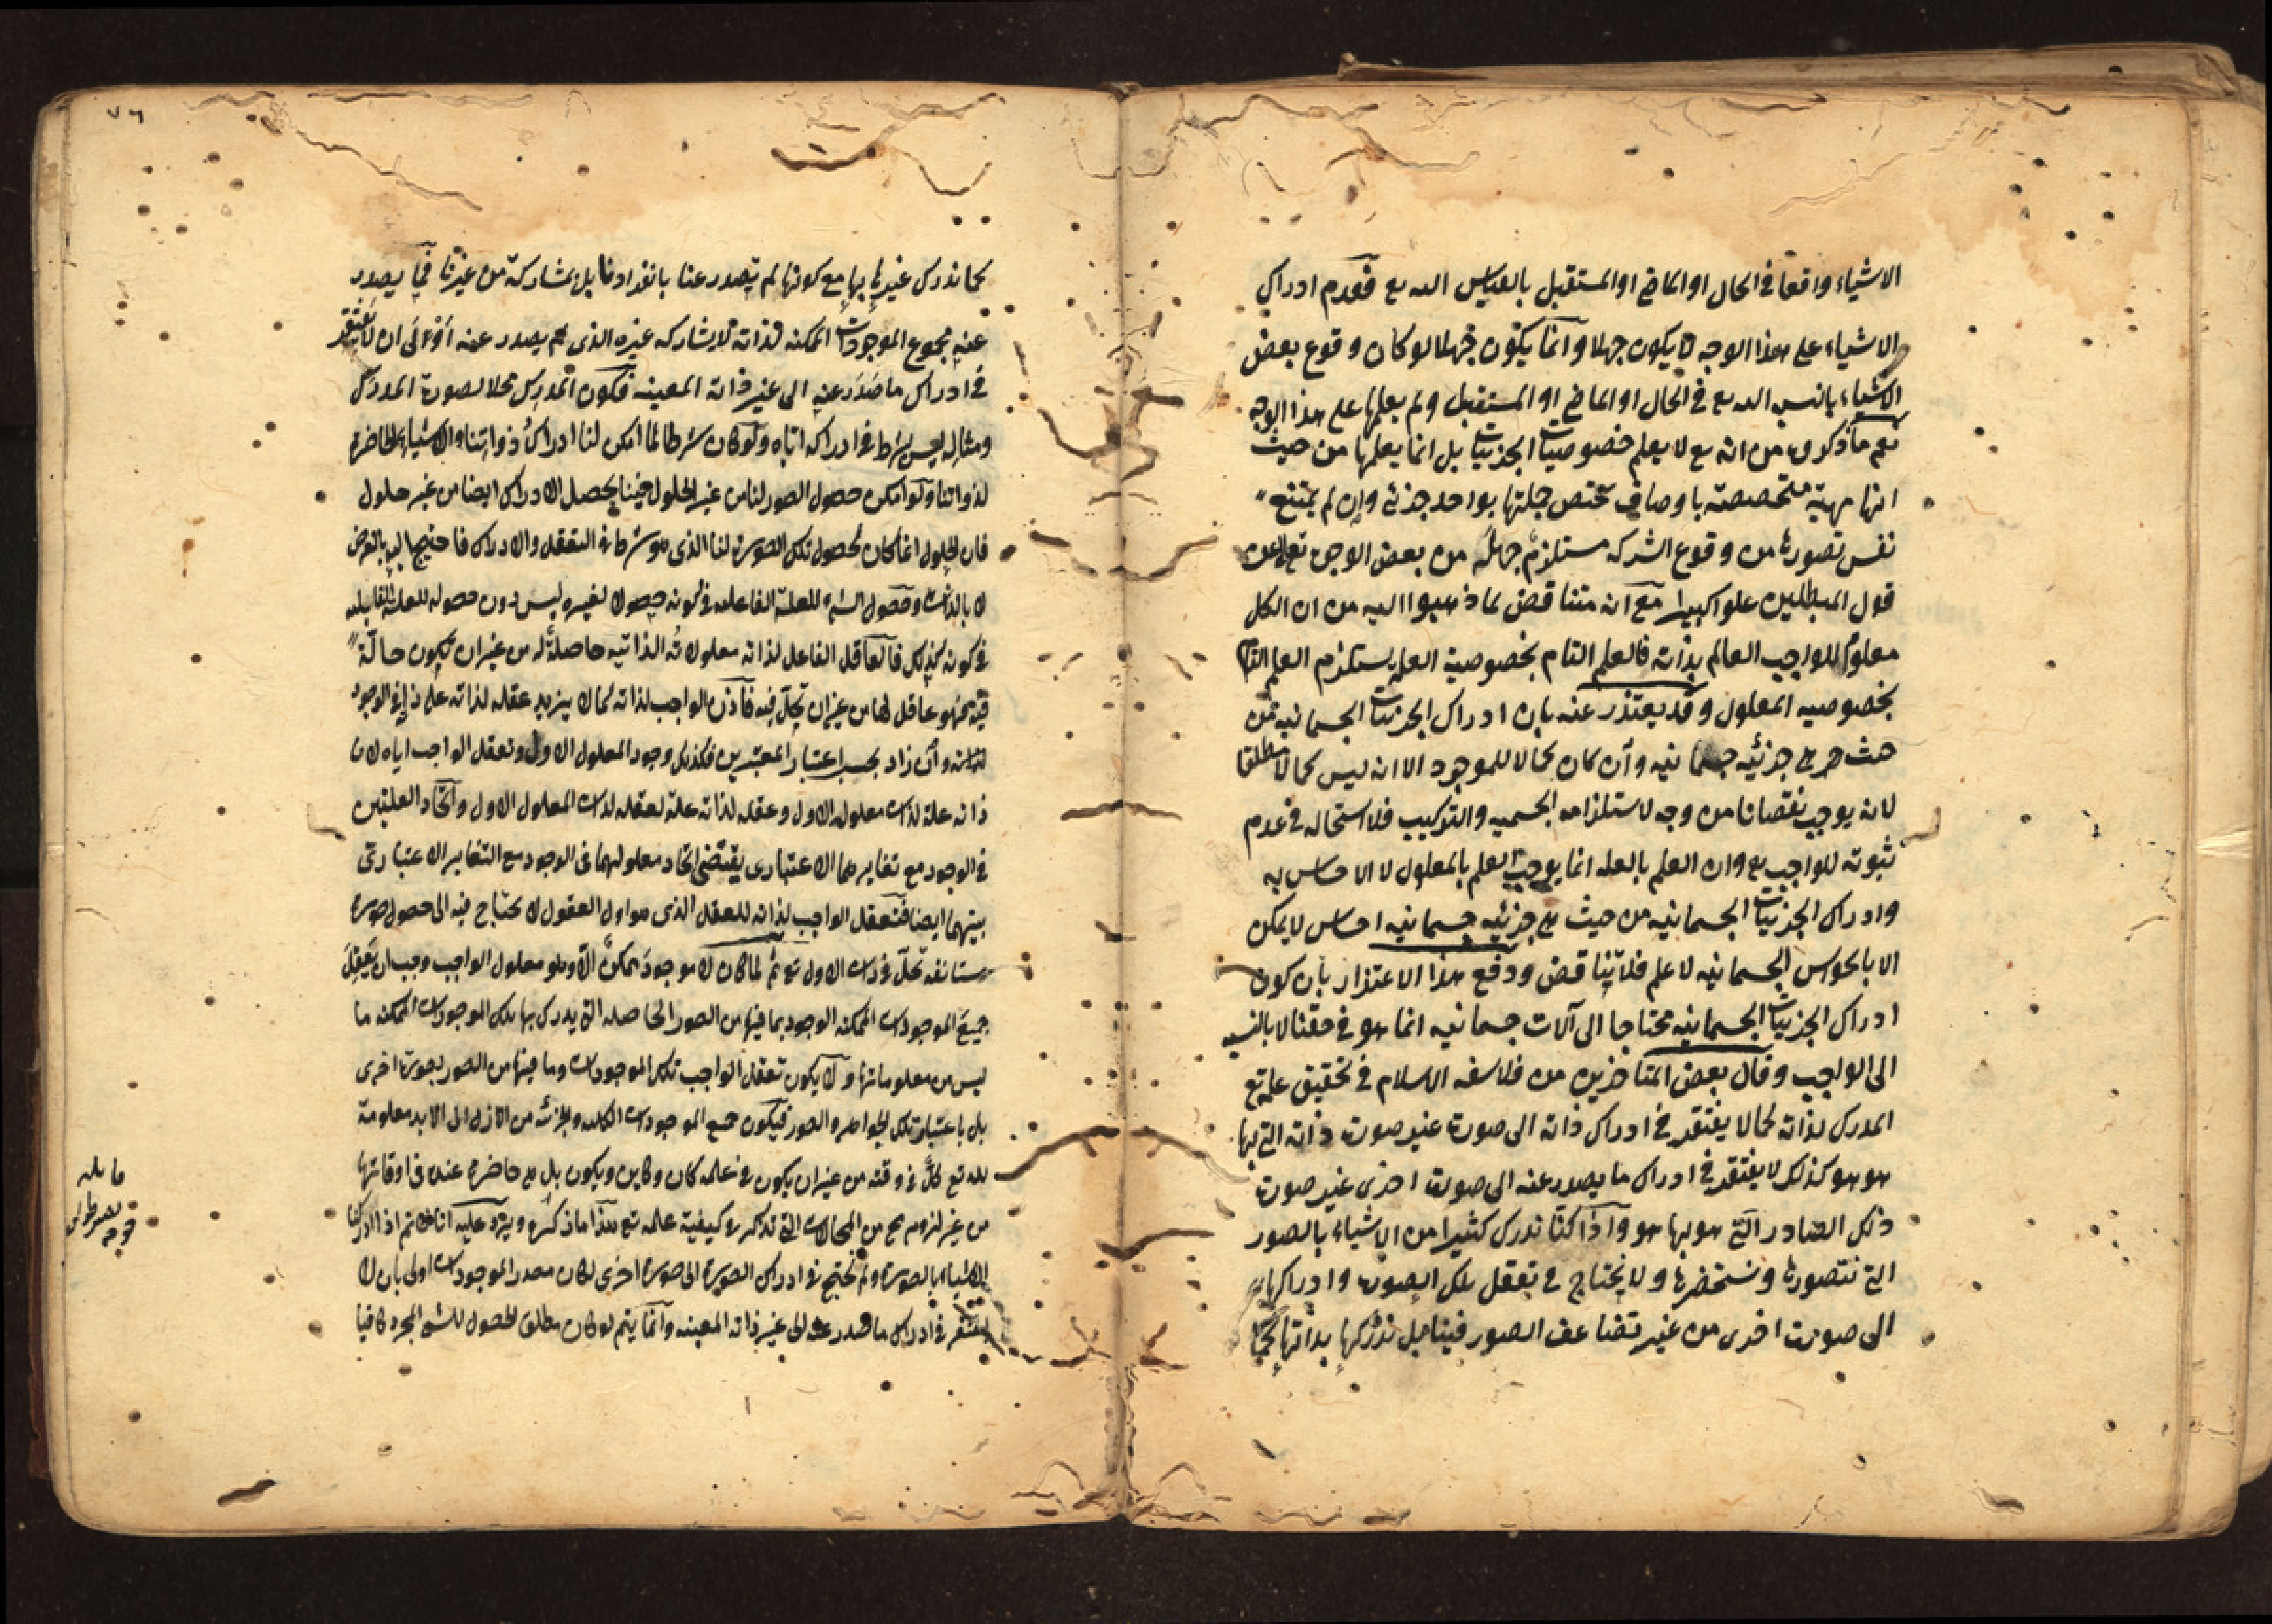 الاشياء واقعا فى الحال او الماضى او المستقبل بالقياس اليه تع فعدم ادراك
الاشياء على هذا الوجه لا يكون جهلا وانما يكون جهلا لو كان وقوع بعض
الاشياء بالنسبه اليه تع فى الحال او الماضى او المستقبل ولم يعلمها على هذا الوجه
نعم ما ذكروه من انه تع لا يعلم خصوصيات الجزئيات بل انما يعلمها من حيث
انها مهية متخصصة باوصاف تختص جملتها بواحد جزئى وان لم يمتنع
نفس تصورها من وقوع الشركه مستلزم جهله من بعض الوجوه تعالى عن
قول المبطلين علوا كبيرا مع انه متناقض لما ذهبوا اليه من ان الكل
معلول للواجب العالم بذاته فالعلم التام بخصوصية العله يستلزم العلم التام
بخصوصيه المعلول وقد يعتذر عنه بان ادراك الجزئيات الجسمانيه من
حيث هى جزئيه جسمانيه وان كان كمالا للموجود الا انه ليس كمالا مطلقا
لانه يوجب نقصانا من وجه لاستلزامه الجسميه والتركيب فلا استحاله فى عدم
ثبوته للواجب تع وان العلم بالعله انما يوجب العلم بالمعلول لا الاحساس به
وادراك الجزئيات الجسمانيه من حيث هى جزئيه جسمانيه احساس لا يمكن
الا بالحواس الجسمانيه لا علم فلا تناقض ودفع هذا الاعتذار بان كون
ادراك الجزئيات الجسمانيه محتاجا الى آلات جسمانيه انما هو فى حقنا لا بالنسبه
الى الواجب وقال بعض المتاخرين من فلاسفه الاسلام فى تحقيق علمه تع
المدرك لذاته كما لا يفتقر فى ادراك ذاته الى صورة غير صورة ذاته التى بها
هو هو كذلك لا يفتقر فى ادراك ما يصدر عنه الى صورة اخرى غير صورة
ذلك الصادر التى هو بها هو واذا كنا ندرك كثيرا من الاشياء بالصور
التى نتصورها ونستحضرها ولا نحتاج فى تعقل تلك الصورة وادراكها
الى صورة اخرى من غير تضاعف الصور فينا بل ندركها بذاتها كما
٧٦
كما ندرك غيرها بها مع كونها لم تصدر عنا بانفرادنا بل بمشاركة من غيرنا فما يصدر
عنه مجموع الموجودات الممكنه لذاته لا يشاركه غيره الذى لم يصدر عنه اولى ان لا يفتقر
فى ادراك ما صدر عنه الى غير ذاته المعينه فكون المدرك محلا لصورة المدرك
ومثاله ليس بشرط فى ادراكه اياه ولو كان شرطا لما امكن لنا ادراك ذواتنا والاشياء الحاضره
لذواتنا ولو امكن حصول الصور لنا من غير الحلول فينا يحصل الادراك ايضا من غير حلول
فان الحلول انما كان لحصول تلك الصورة لنا الذى هو شرط فى التعقل والادراك فاحتيج اليه بالعرض
لا بالذات وحصول الشىء للعلة الفاعليه فى كونه حصولا لغيره ليس دون حصوله للعلة القابليه
فى كونه كذلك فالعاقل الفاعل لذاته معلولاته الذاتيه حاصلة له من غير ان يكون حالّة
فيه فهو عاقل لها من غير ان تحلّ فيه فاذن الواجب لذاته كما لا يزيد عقله لذاته على ذاته فى الوجود
لذاته وان زاد بحسب اعتبار المعتبرين فكذلك وجود المعلول الاول وتعقل الواجب اياه لان
ذاته علة لذات معلوله الاول وعقله لذاته علة لعقله لذات المعلول الاول واتحاد العلتين
فى الوجود مع تغايرهما الاعتبارى يقتضى اتحاد معلوليهما فى الوجود مع التغاير الاعتبارى
بينهما ايضا فتعقل الواجب لذاته للعقل الذى هو اول العقول لا يحتاج فيه الى حصول صورة
مستانفه تحلّ فى ذات الاول تع ثم لما كان لا موجود ممكن الا وهو معلول الواجب وجب ان يعقل
جميع الموجودات الممكنه الوجود بما فيها من الصور الحاصله التى يدرك بها تلك الموجودات الممكنه ما
ليس من معلوماتها ولا يكون تعقل الواجب تلك الموجودات وما فيها من الصور بصورة اخرى
بل باعتبار تلك الجواهر والصور فيكون جميع الموجودات الكليه والجزئيه من الازل الى الابد معلومة
لله تع كلّ فى وقته من غير ان يكون فى علمه كان وكاين ويكون بل هى حاضرة عنده فى اوقاتها
من غير لزوم شىء من المحالات التى تذكر فى كيفية علمه تع هذا ما ذكره ويرد عليه انا اذا ادركنا
الاشياء بالصورة ولم نحتج فى ادراك الصورة الى صورة اخرى لكان مصدر الموجودات اولى بان لا
يفتقر فى ادراك ما صدر عنه الى غير ذاته المعينه وانما يتم لو كان مطلق الحصول للشىء المجرد كافيا